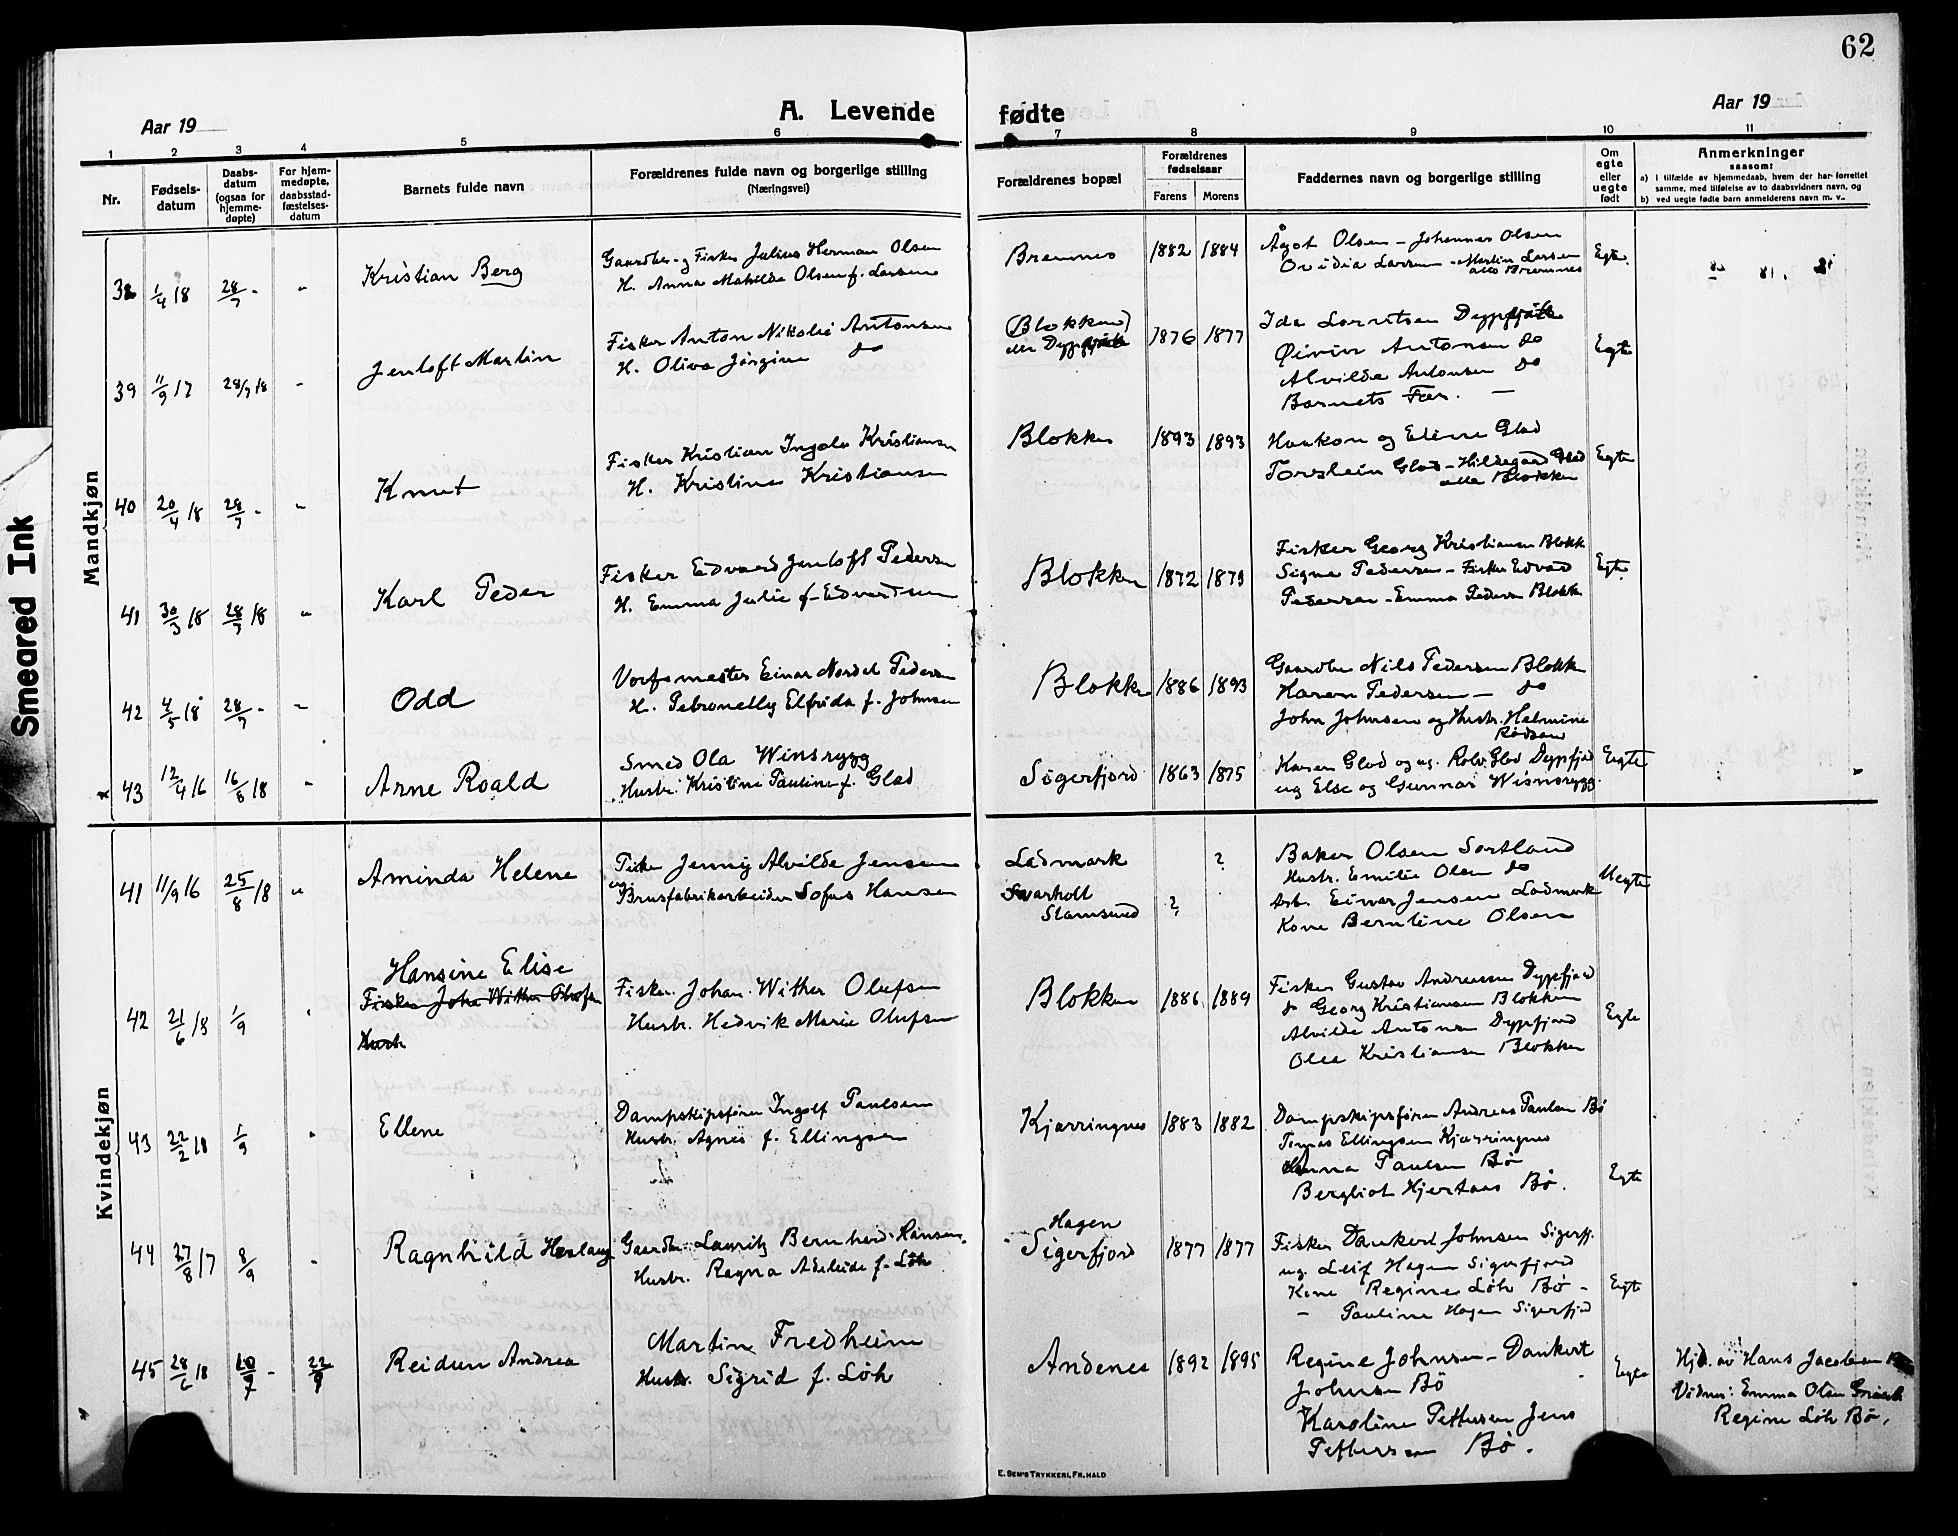 62
A. Levende fødte
Aar 19
Aar 19
1 2 3 4 5 6 7 8 9 10 11
Nr.
Fødselsdatum
Daabsdatum (ogsaa for hjemmedøpte)
For hjemmedøpte, daabsstadfæstelsesdatum
Barnets fulde navn
Forældrenes fulde navn og borgerlige stilling
(Næringsvei)
Forældrenes bopæl
Forældrenes fødselsaar
Farens Morens
Faddernes navn og borgerlige stilling
Om egte eller uegte født
Anmerkninger
saasom:
a) i tilfælde av hjemmedaab, hvem der har forrettet
samme, med tilføielse av to daabsvidners navn, og
b) ved uegte fødte barn anmelderens navn m. v.
Smeared Ink
Mandkjøn
38 1/4 18 28/7 - " Kristian Berg
Gaardbr. og Fisker Julius Herman Olsen
H. Anna Mathilde Olsen f. Larsen
Bremnes 1882 1884
Ågot Olsen - Johannes Olsen
Ovidia Larsen - Martin Larsen
alle Bremnes
Egte
39 11/9 17 28/7 18 " Jentoft Martin
Fisker Anton Nikolai Antonsen
H. Oliva Jørgine do
(Blokken)
1876 1877
Ida Dyppfjord
Øivin Antonsen do
Alvilde Antonsen do
Barnets Far. —
Egte
40 20/4 18 28/7 - " Knut
Fisker Kristian Kristiansen
H. Kristine Kristiansen
Blokken 1893 1893
Haakon og Eline Glad
Torstein Glad - Hildegard Glad
alle Blokken
Egte
41 30/3 18 28/7 18 " Karl Peder
Fisker Edvard Jentoft Pedersen
H. Emma Julie f. Edvardsen
Blokken 1872 1879
Fisker Georg Kristiansen Blokk
Signe Pedersen - Fisker Edvard
Pedersen - Emma Pedersen Blokk
Egte
42 4/5 18 28/7 - " Odd
Einar Nordal Pedersen
H. Petronelly Elfrida f. Johnsen
Blokken 1886 1893
Gaardbr Nils Pedersen Blokk
Haren Pedersen — do
John Johnsen og Hustr. Helmine
43 12/4 16 16/8 18 " Arne Roald
Smed Ola Winsrygg
Hustr. Kristine Pauline f. Glad
Sigerfjord 1863 1875
Karen Glad og ug. Rolv Glad Dyppfjord
ug Else og Gunnar Winsrygg
Egte
Kvindekjøn
41 11/9 16 25/8 18 " Aminda Helene
Pike Jenny Alvilde Jensen
og Brusfabrikarbeider Sofus Hansen
Ladmark
Svarholt
Stamsund
? ?
Baker Olsen Sortland
Hustr. Emilie Olsen do
Arb. Einar Jensen Ladmark
Kone Berntine Olsen
Uegte
42 21/6 18 1/9 " Hansine Elise
Fisker Johan Wither Olufsen
Hustr
Fisker. Johan Wither Olufsen
Hustr. Hedvik Marie Olufsen
Blokken 1886 1889
Fisker Gustav Andreassen Dyppfjord
do Georg Kristiansen Blokken
Alvilde Antonsen Dyppfjord
Olea Kristiansen Blokken
Egte
43 22/2 18 1/9 " Ellene
Dampskipsfører Ingolf Paulsen
Hustr. Agnes f. Ellingsen
Kjørringnes 1883 1882
Dampskipsfører Andreas Paulsen Bø
Tomas Ellingsen Kjørringnes
Anna Paulsen Bø
Bergliot Hjertaas Bø.
Egte
44 27/8 17 8/9 " Ragnhild Herlaug
Gaardbr. Lauritz Bernhard Hansen
Hustr. Ragna Adeleide f. Löh
Hagen
Sigerfjord 1877 1877
Fisker Dankert Johnsen Sigerfj.
ug. Leif Hagen Sigerfjord
Kone Regine Löh Bø -
- Pauline Hagen Sigerfjord
Egte
45 28/6 18 22/9 Reidun Andrea
Martin Fredheim
Hustr. Sigrid f. Löh
Andenes 1892 1895
Regine Johnsen - Dankert
Johnsen Bø
Karoline Pettersen Jens
Pettersen Bø.
Egte
Hjd. av Hans Jacobsen
Vidner: Emma Olsen
Regine Löh Bø.
E. SEM'S TRYKKERI, FR. HALD